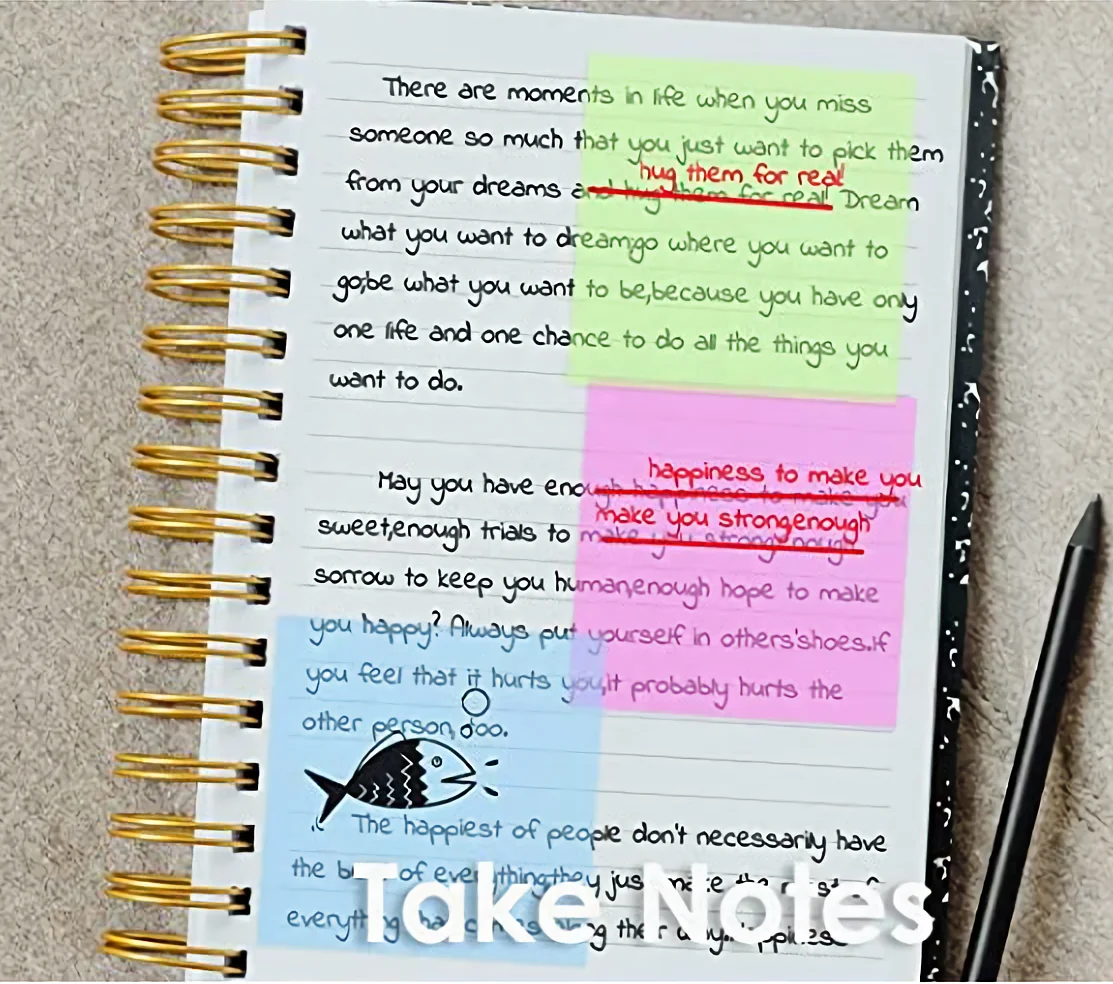 There are moments in life when you miss
someone so much that you just want to pick them
hug them for real!
from your dreams and hug them for real! Dream
what you want to dream;go where you want to
go;be what you want to be,because you have only
one life and one chance to do all the things you
want to do.
happiness to make you
May you have enough happiness to make you
make you strong,enough
sweet,enough trials to make you strong,enough
sorrow to keep you human,enough hope to make
you happy? Always put yourself in others'shoes.If
you feel that it hurts you,it probably hurts the
other person, too.
The happiest of people don't necessarily have
the of everything;they just make the
everything along their way.Happiness
Take Notes